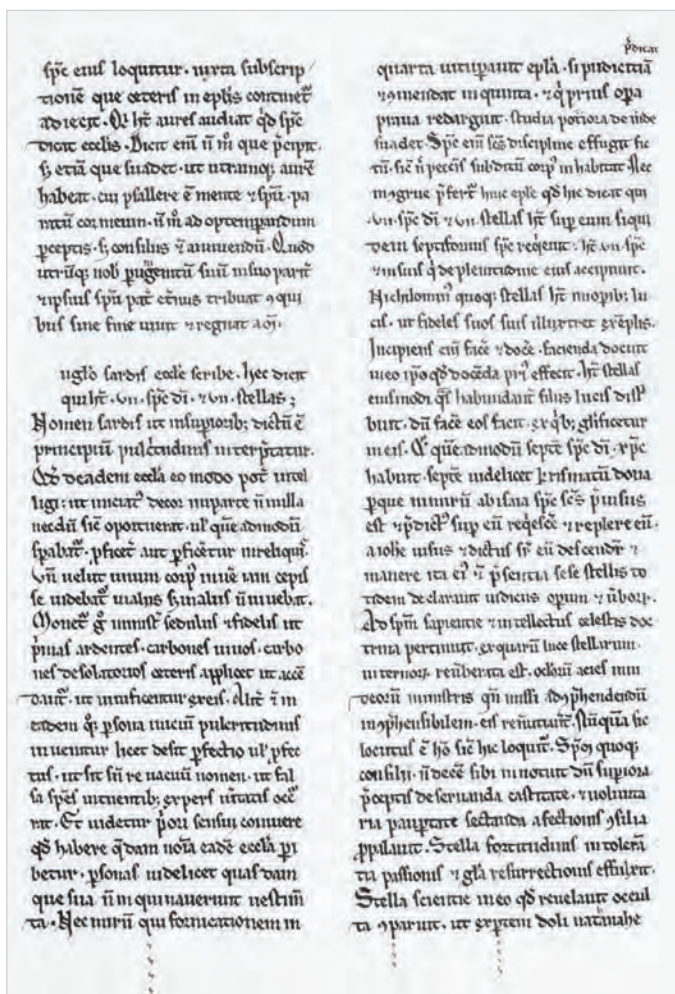 sp̄c eius loquitur. iuxta subscrip
tionē que ceteris in eplīs continet᷑
adiecit. Qi ħt aures audiat qđ sp̄c
dicit ecclis. Dicit enī ñ m̊ que p̄cipit.
s; etiā que suadet. ut utramq; aurē
habeat. cui psallere ē mente ⁊ sp̄u. pa
ratū cor meum. ñ m̊ ad optemperandum
p̄ceptis. s; consiliis ⁊ Quod
utrūq; nob̄ p̱ugenitū suū in suo parit᷑
⁊ ipsius sp̄u pat̄ et̄nus tribuat ꝯ qui
bus sine fine uiuit ⁊ regnat
uglo sardis eccle scribe. hec dicit
qui ħt. vii. sp̄c di. ⁊ vii. stellas;
Nomen sardis ut in supiorib; dictū ē
principiū pulc̄tudinis interp̄tatur.
Qđ de adem ecclā eo modo pot̄ intel
ligi: ut inciat᷑ decor in parte ñ in illa
necdū sic̄ oportuerat. ul' que admodū
spabat᷑. ꝑficet᷑ aut ꝑficeretur in reliqui.
Vñ uelut unum corp̱ in uē iam cepis
se uidebat᷑ in aliis s; in aliis ñ uiuebat.
Monet᷑ g̊ minist̄ sedulus ⁊ fidelis ut
p̄unas ardentes. carbones uiuos. carbo
nes desolatorios ceteris applicet ut accē
dant᷑. ut uiuificentur gregis. Alit̄ ⁊ in
eadem q̊; ꝑsona iniciū pulcritudinis
inuenitur licet desit ꝑfectio ul' ꝑfec
tus. ut sit sn̄ re uacuū nomen. ut fal
sa spēs intuentib; expers ū̄itatis occ̄
rat. Et uidetur p̄ori sensui conuenire
qđ habere q̄dam noīa eadē ecclā p̱i
betur. ꝑsonas uidelicet quas dam
que sua ñ inquinauerunt uestim̄
ta. Nec mirū qui fornicationem in
p̄dicat
quarta uituꝑauit eplā. si pudicitiā
⁊ ꝯmendat in quinta. ⁊ q̊ prius oꝑa
praua redarguit. studia potiora de inde
suadet. Sp̄c enī scs̄ discipline effugit fic
tū. sic̄ ñ peccīs subditū corp̱ inhabitat. Nec
incōgrue p̄fert᷑ huic eplē qđ hic dicat qui
vii. sp̄c di ⁊ vii. stellas ħt sup eum siqui
dem septiformis sp̄c reqeuit. ħt vii sp̄c
⁊ in suis q̊ de plenitudine eius accipiunt.
Nichilomin᷑ quoq; stellas ħt in opib; lu
cis. ut fideles suos suis illustret exēplis.
Incipiens enī facē ⁊ docē. facienda docuit
in eo ip̄o qđ docēda pri᷑ effecit. ħt stellas
eiusmodi habundant filiis lucis
buit. dū facē eos facit. ex q̊b; glificetur
in eis. Qi que admodū septē sp̄c di. xp̄c
habuit. septē uidelicet krismatū dona
ꝑque nimirū ab isaia sp̄c scs̄ p̄uisus
est ⁊ p̄dict᷑ sup eū reqescē ⁊ replere eū.
a iohē uisus ⁊ dictus sr̄ eū descendr̄ ⁊
manere ita ei᷑ ⁊ p̄sentia sese stellis to
tidem declarauit iudiciis opum ⁊ ū̄borꝝ.
Ad sp̄m sapientie ⁊ intellectus celestis doc
trina pertinuit. ex quarū luce stellarum
internorꝝ reuerberata est. oclorū acies iu
deorū ministris qn̄ missi ad ꝯp̄hendendū
inꝯp̄hensibilem. eis renūtiauit. Nūquā sic
locutus ē hō sic̄ hic loquit᷑. Sp̄m quoq;
consilii. ñ decē sibi innotuit dū superiora
p̄ceptis de seruanda castitate. ⁊ uolunta
ria paupertate sectanda afectionis ꝯsilia
ꝓpalauit. Stella fortitudinis in tolerā
tia passionis ⁊ gl̄a resurrectionis effulxit.
Stella scientie in eo qđ reuelauit occul
ta ꝯparuit. ut exꝑtem doli natanahe